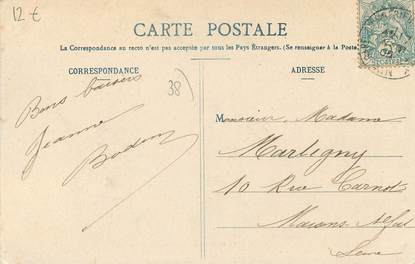 12 €
CARTE POSTALE
La Correspondance au recto n'est pas acceptée par tous les Pays Étrangers. (Se renseigner à la Poste.)
CORRESPONDANCE
ADRESSE
38)
Bons baisers
Jeanne
Monsieur, Madame
Martigny
10 Rue Carnot
Maisons Alfort
Seine